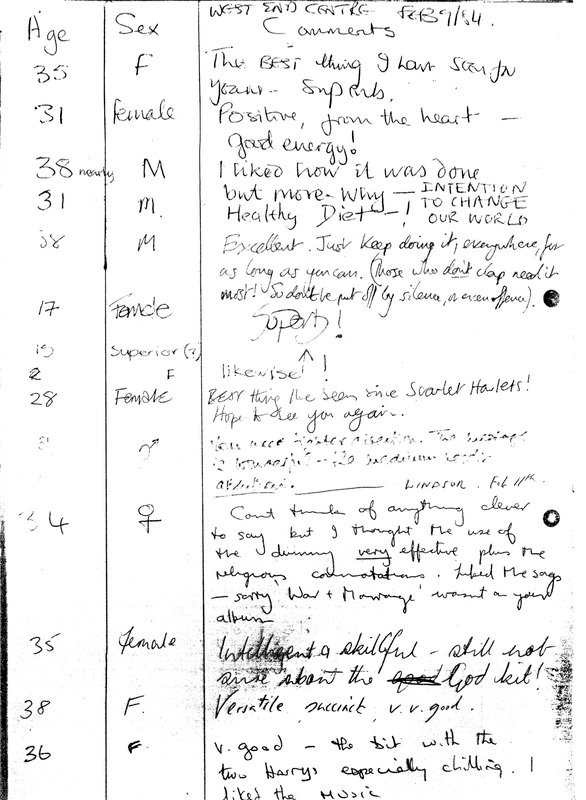 WEST END CENTRE FEB 9/84.
Age Sex Comments
35 F The BEST thing I have seen for
years - Superb.
31 female Positive, from the heart -
good energy!
38 nearly M I liked how it was done
31 m. but more - Why - INTENTION
Healthy Diet - ! TO CHANGE
OUR WORLD
38 M Excellent. Just keep doing it, everywhere, for
as long as you can. (Those who don't clap need it
most! So don't be put off by silence, or even offence).
17 Female Superb!
19 Superior (?)
2 F likewise !
28 Female BEST thing I've seen since Scarlet Harlets!
Hope to see you again..
♂ You need tighter direction. The message
is powerful - the medium needs
attention. LINDSOR. Feb 11th.
34 ♀ Can't think of anything clever
to say but I thought the use of
the dummy very effective plus the
religious connotations. Liked the songs
- sorry 'War + Marriage' wasn't on your
album
35 female Intelligent & skillful - still not
sure about the God bit!
38 F. Versatile succinct v.v. good.
36 F v. good - the bit with the
two Harrys especially chilling. I
liked the music